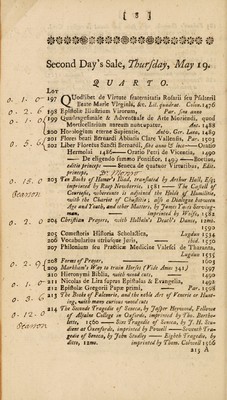 [ 8 ]
Second Day's Sale, Thursday, May 19.
QUARTO.
LOT
0. 1. 0 197 Quodlibet de Virtute fraternitatis Rosarii seu Psalterii
Sancte Marie Virginis, &c. Lit. quadrat. Colon. 1476
0. 2. 6 198 Epistole Illustrium Virorum, Par. sine anno
0. 1. 0 199 Quadragesimale & Adventuale de Arte Moriendi, quod
Morticellarium aureum nuncupatur, Ant. 1488
200 Horologium eterne Sapientie, Antv. Ger. Leeu, 1489
201 Flores beati Bernardi Abbatis Clare Vallensis, Par. 1503
0. 5. 6 202 Liber Floretus Sancti Bernardi, sine anno & loco — Oratio
Hermolai 1486 — Oratio Petri de Vicentia, 1490
— De eligendo summo Pontifice, 1492 — Boetius,
editio princeps — Seneca de quatuor Virtutibus, Edit.
princeps,
203 Ten Books of Homer's Iliad, translated by Arthur Hall, Esq;
imprinted by Raufe Newberrie, 1581 — The Castell of
Courtesie, whereunto is adjoined the Holde of Humilitie,
with the Chariot of Chastitie; also a Dialogue between
Age and Youth, and other Matters, by James Yates Serving-
man, imprinted by Wolfe, 1582
0. 2. 0 204 Christian Prayers, with Holbein's Death's Dance,
1590
205 Comestoris Historia Scholastica, Lugdun 1534
206 Vocabularius utriusque Juris, ibid. 1550
207 Philonium seu Practica Medicine Valesci de Tharanta,
Lugdun. 1535
0. 2. 9 208 Forme of Prayer, 1603
209 Markham's Way to traine Horses (Vide Ames 341) 1597
210 Hieronymi Biblia, with wood cuts, 1499
0. 1. 0 211 Nicolas de Lira supres Epistolas & Evangelia, 1492
212 Epistole Gregorii Pape primi, Par. 1508
0. 3. 6 213 The Booke of Falconrie, and the noble Art of Venerie or Hunt-
ing, with many curious wood cuts
0. 12. 0 214 The Seconde Tragedie of Seneca, by Jasper Heywood, Fellowe
of Alsolne College in Oxforde, imprinted by Tho. Berthe-
lette, 1560 — Sixe Tragedie of Seneca, by J. H. Stu-
diant at Oxenforde, imprinted by Powell — Seventh Tra-
gedie of Seneca, by John Studley — Eighth Tragedie, by
ditto, imprinted by Thom. Colwell 1566
215 A